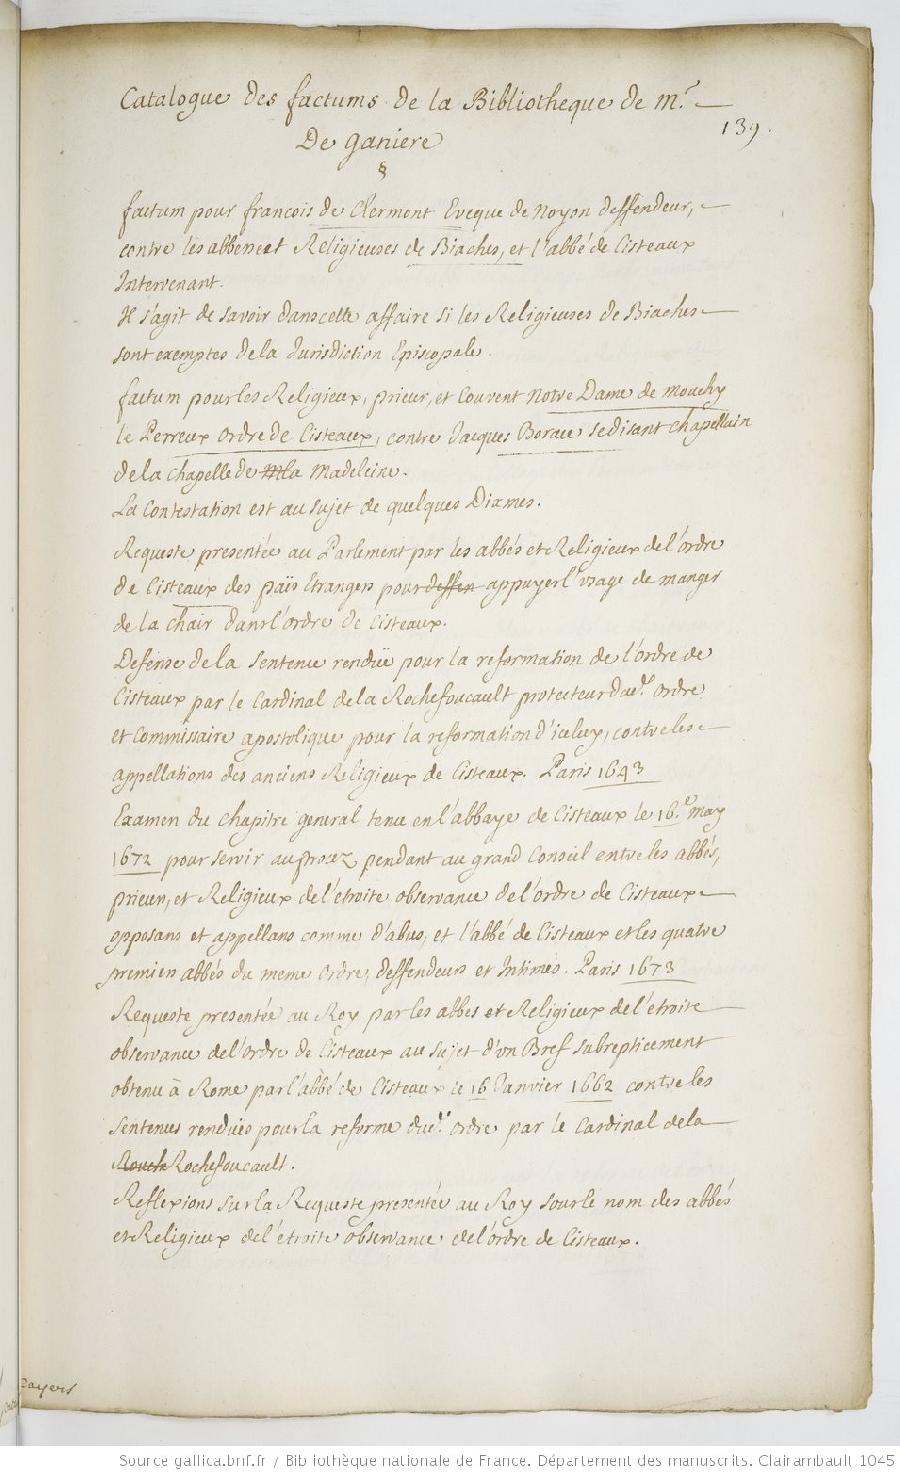 Catalogue des factums de la Bibliotheque de mr
De ganiere
139.
§
factum pour francois de Clermont Eveque de Noyon deffendeur,
contre les abbesse et Religieuses de Biaches, et l'abbé de Cisteaux
Intervenant.
Il s'agit de savoir dans cette affaire si les Religieuses de Biaches
sont exemptes de la Jurisdiction Episcopale.
factum pour les Religieux, prieur, et Couvent Notre Dame de mouchy
le Perreux ordre de Cisteaux, contre Jacques se disant chapellain
de la chapelle de la Madeleine.
La Contestation est au sujet de quelques Dixmes.
Requeste presentée au Parlement par les abbés et Religieux de l'ordre
de Cisteaux des païs Etrangers pour deffen appuyer l'usage de manger
de la chair dans l'ordre de Cisteaux.
Defense de la Sentence rendüe pour la reformation de l'ordre de
Cisteaux par le Cardinal de la Rochefoucault protecteur dudt. ordre
et Commissaire apostolique pour la reformation d'iceluy, contre les
appellations des anciens Religieux de Cisteaux. Paris 1643
Examen du chapitre general tenu en l'abbaye de Cisteaux le 16e may
1672 pour servir au procez pendant au grand Conseil entre les abbés,
prieurs, et Religieux de l'étroite observance de l'ordre de Cisteaux
opposans et appellans comme d'abus, et l'abbé de Cisteaux et les quatre
premiers abbés du meme ordre, deffendeurs et Intimés. Paris 1673
Requeste presentée au Roy par les abbés et Religieux de l'étroite
observance de l'ordre de Cisteaux au sujet d'un Bref subrepticement
obtenu à Rome par l'abbé de Cisteaux le 16 Janvier 1662 contre les
sentences rendües pour la reforme dudt. ordre par le Cardinal de la
Rouch Rochefoucault.
Reflexions sur la Requeste presentée au Roy sous le nom des abbés
et Religieux de l'étroite observance de l'ordre de Cisteaux.
Source gallica.bnf.fr / Bibliothèque nationale de France. Département des manuscrits. Clairambault 1045